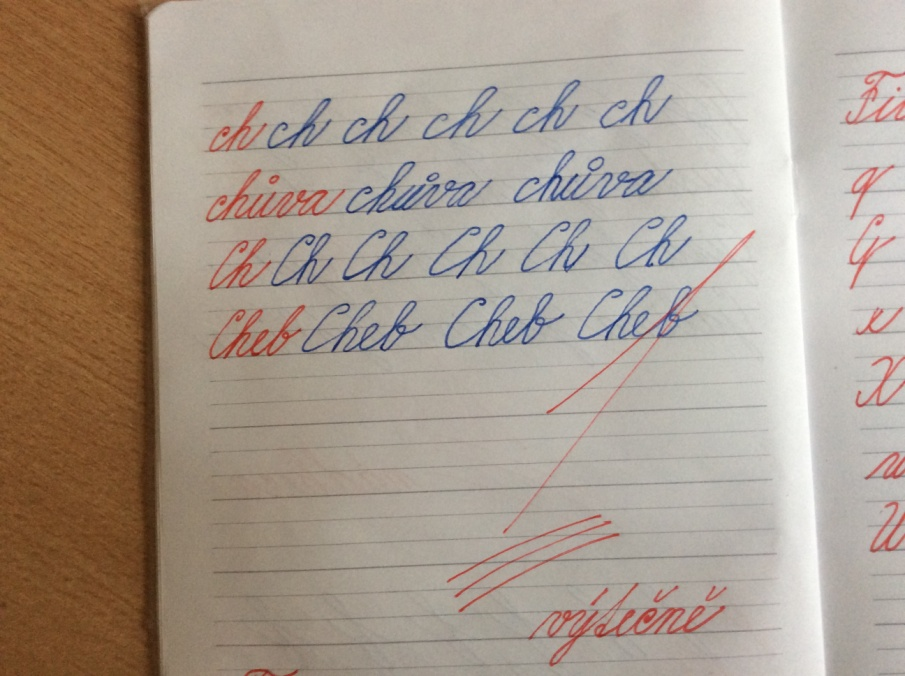 ch ch ch ch ch ch
chůva chůva chůva
Ch Ch Ch Ch Ch Ch
Cheb Cheb Cheb Cheb
výtečně
q
G
x
X